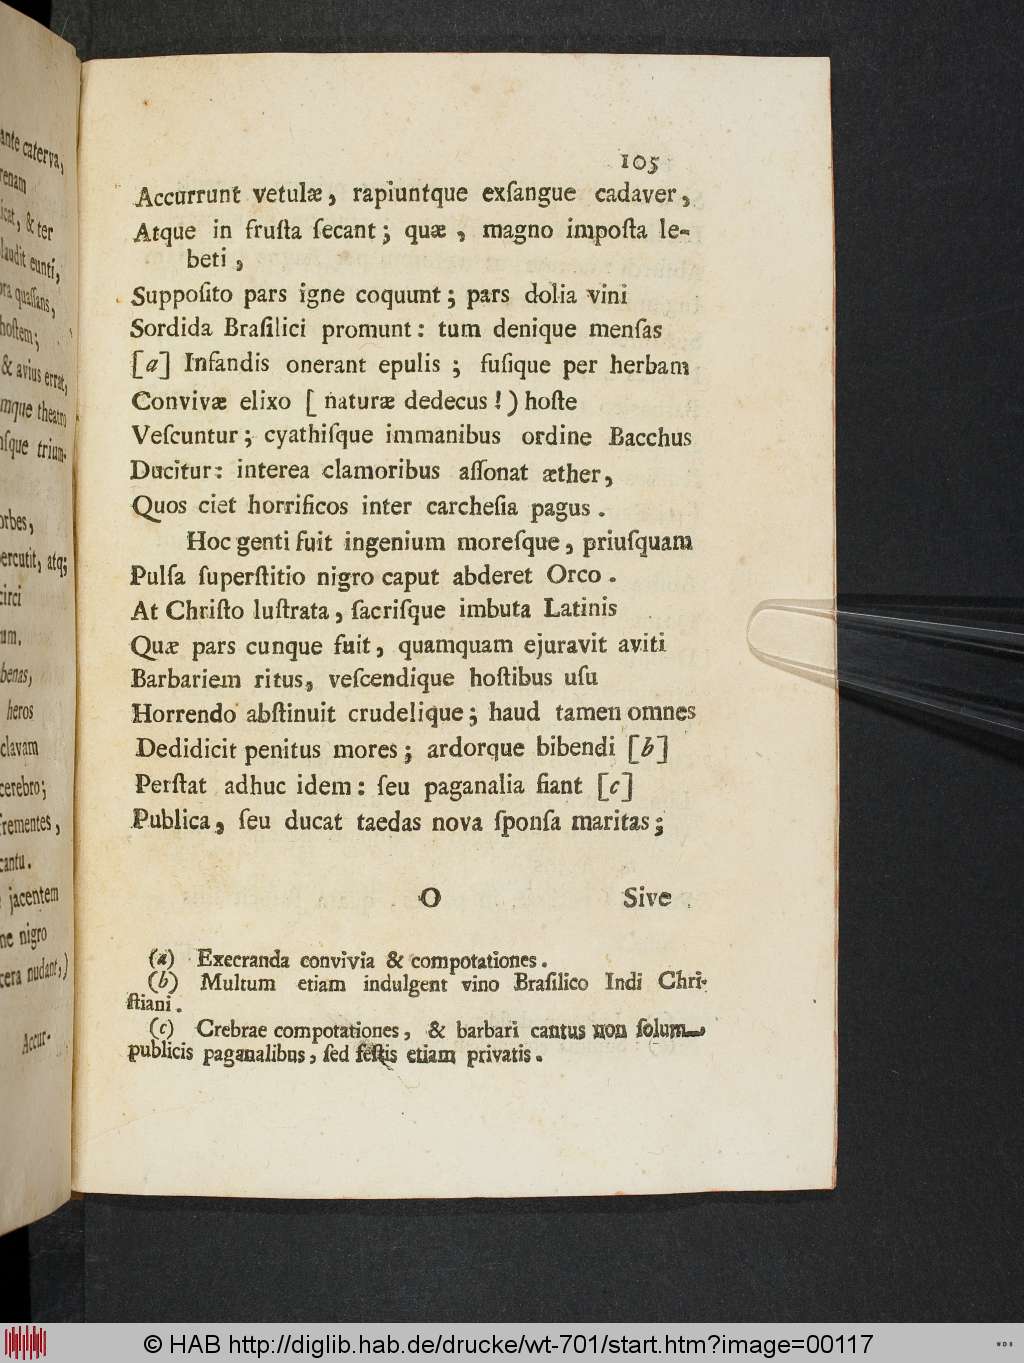 ante caterva,
renam
icat, & ter
laudit eunti,
ora quaſſans,
hoſtem;
& avius errat,
mque theatro
nſque trium-
orbes,
percutit, atq;
circi
um.
benas,
heros
clavam
cerebro;
frementes,
cantu.
jacentem
ne nigro
cera nudant,)
Accur-
105
Accurrunt vetulæ, rapiuntque exſangue cadaver,
Atque in fruſta ſecant; quæ, magno impoſta le-
beti,
Suppoſito pars igne coquunt; pars dolia vini
Sordida Braſilici promunt: tum denique menſas
[a] Infandis onerant epulis; fuſique per herbam
Convivæ elixo [ naturæ dedecus!) hoſte
Veſcuntur; cyathiſque immanibus ordine Bacchus
Ducitur: interea clamoribus aſſonat æther,
Quos ciet horrificos inter carcheſia pagus.
Hoc genti fuit ingenium moreſque, priuſquam
Pulſa ſuperſtitio nigro caput abderet Orco.
At Chriſto luſtrata, ſacriſque imbuta Latinis
Quæ pars cunque fuit, quamquam ejuravit aviti
Barbariem ritus, veſcendique hoſtibus uſu
Horrendo abſtinuit crudelique; haud tamen omnes
Dedidicit penitus mores; ardorque bibendi [b]
Perſtat adhuc idem: ſeu paganalia fiant [c]
Publica, ſeu ducat taedas nova ſponſa maritas;
O Sive
(a) Execranda convivia & compotationes.
(b) Multum etiam indulgent vino Braſilico Indi Chri-
ſtiani.
(c) Crebrae compotationes, & barbari cantus non ſolum
publicis paganalibus, ſed feſtis etiam privatis.
© HAB http://diglib.hab.de/drucke/wt-701/start.htm?image=00117